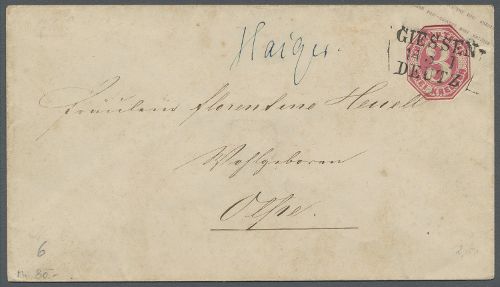 Haiger.
GIESSEN
DEUTZ
3
Fräulein Florentine Heuell
Wohlgeboren
Olpe.
6
80.-